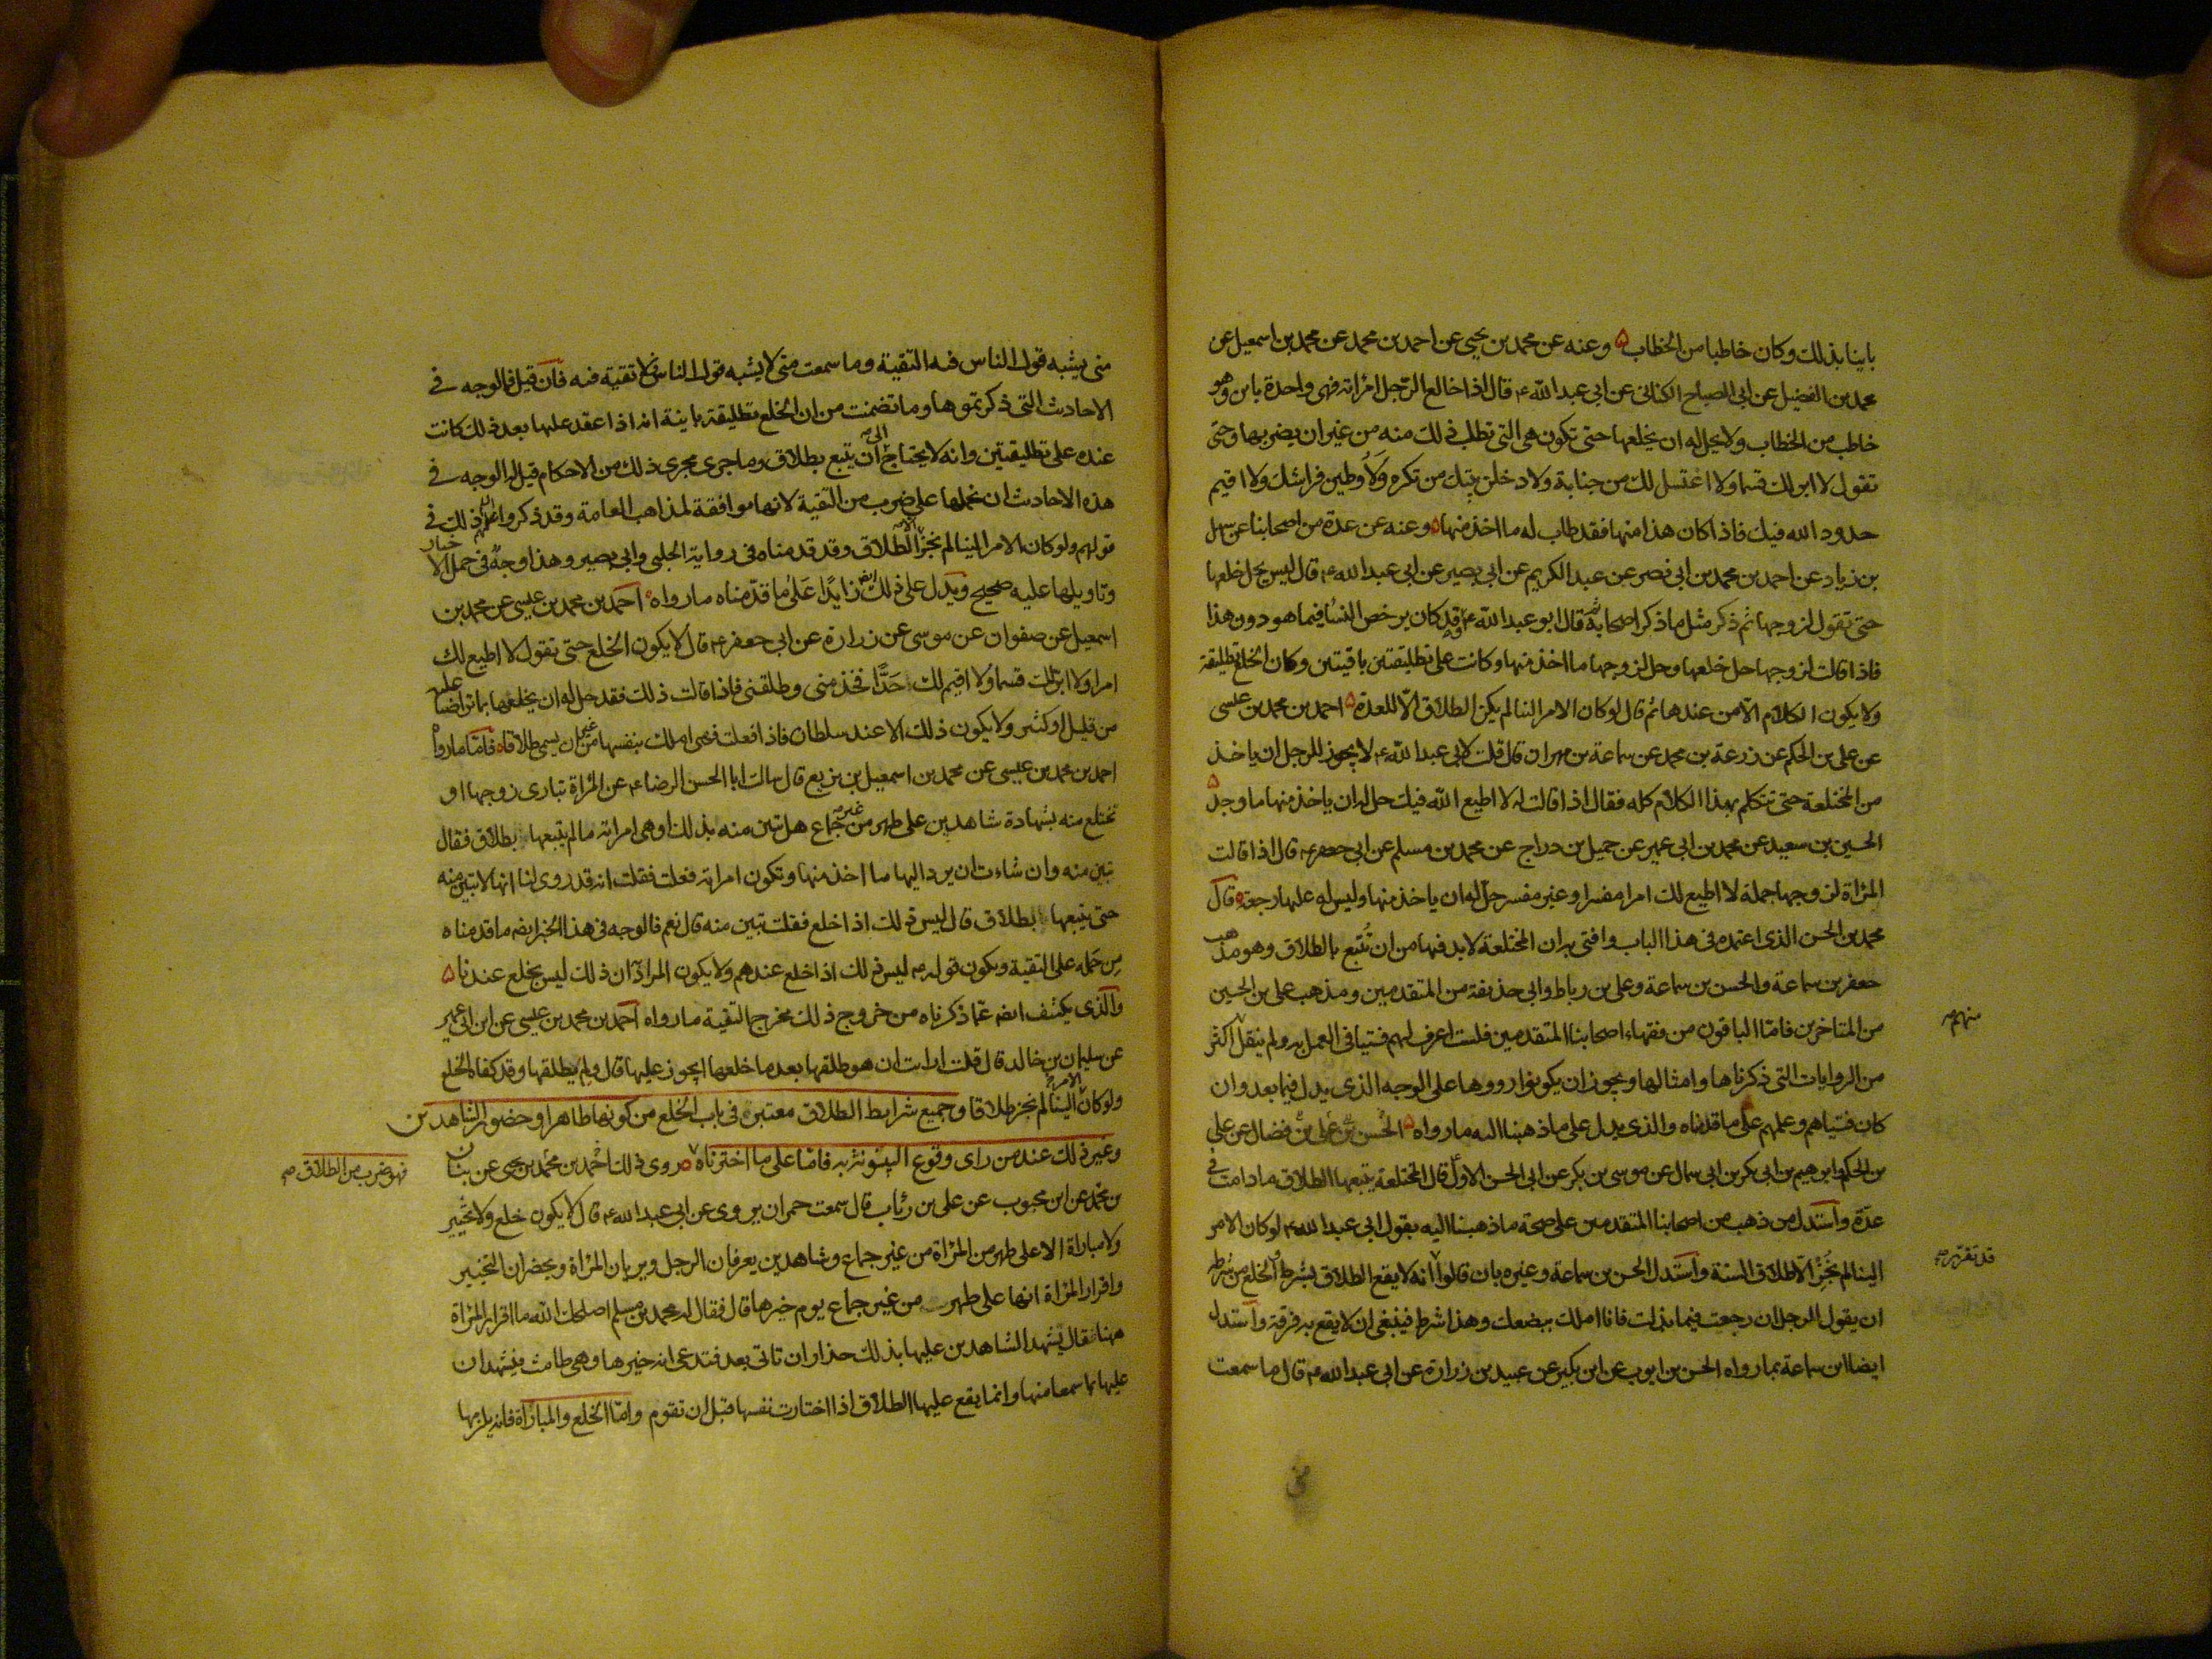 باينا بذلك وكان خاطبا من الخطاب ۵ وعنه عن محمد بن يحيى عن احمد بن محمد عن محمد بن اسمعيل عن
محمد بن الفضيل عن ابى الصباح الكنانى عن ابى عبد الله ع قال اذا خالع الرجل امراته فهى واحدة باين وهو
خاطب من الخطاب ولا يحل له ان يخلعها حتى تكون هى التى تطلب ذلك منه من غير ان يضر بها وحتى
تقول لا ابر لك قسما ولا اغتسل لك من جنابة ولادخلن بيتك من تكره ولاوطين فراشك ولا اقيم
حدود الله فيك فاذا كان هذا منها فقد طاب له ما اخذ منها ۵ وعنه عن عدة من اصحابنا عن سهل
بن زياد عن احمد بن محمد بن ابى نصر عن عبد الكريم عن ابى بصير عن ابى عبد الله ع قال ليس يحل خلعها
حتى تقول لزوجها ثم ذكر مثل ما ذكر اصحابه ثم قال ابو عبد الله ع وقد كان يرخص للنساء فيما هو دون هذا
فاذا قالت لزوجها حل خلعها وحل لزوجها ما اخذ منها وكانت على تطليقتين باقيتين وكان الخلع تطليقة
ولا يكون الكلام الا من عندها ثم قال لو كان الامر الينا لم يكن الطلاق الا للعدة ۵ احمد بن محمد بن عيسى
عن على بن الحكم عن زرعة بن محمد عن سماعة بن مهران قال قلت لابى عبد الله ع لا يجوز للرجل ان ياخذ
من المختلعة حتى تتكلم بهذا الكلام كله فقال اذا قالت له لا اطيع الله فيك حل له ان ياخذ منها ما وجد ۵
الحسين بن سعيد عن محمد بن ابى عمير عن جميل بن دراج عن محمد بن مسلم عن ابى جعفر ع قال اذا قالت
المراة لزوجها جملة لا اطيع لك امرا مفسرا وغير مفسر حل له ان ياخذ منها وليس له عليها رجعة ۵ قال
محمد بن الحسن الذى اعتمده فى هذا الباب وافتى به ان المختلعة لابد فيها من ان تتبع بالطلاق وهو مذهب
جعفر بن سماعة والحسن بن سماعة وعلى بن رباط وابى حذيفة من المتقدمين ومذهب على بن الحسين
من المتاخرين فاما الباقون من فقهاء اصحابنا المتقدمين فلست اعرف لهم فتيا فى العمل به ولم ينقل اكثر
منهم
من الروايات التى ذكرناها وامثالها ويجوز ان يكونوا رووها على الوجه الذى يدل فيما بعد وان
كان فتياهم وعملهم على ما قدمناه والذى يدل على ما ذهبنا اليه ما رواه ۵ الحسن بن على بن فضال عن على
بن الحكم وابرهيم بن ابى بكر بن ابى سمال عن موسى بن بكر عن ابى الحسن الاول قال المختلعة يتبعها الطلاق ما دامت فى
عدة واستدل من ذهب من اصحابنا المتقدمين على صحة ما ذهبنا اليه بقول ابى عبد الله ع لو كان الامر
الينا لم نجز الا طلاق السنة واستدل الحسن بن سماعة وغيره بان قالوا انه لا يقع الطلاق بشرط والخلع من شرطه
قد تقرر
ان يقول الرجل ان رجعت فيما بذلت فانا املك ببضعك وهذا شرط فينبغى ان لا يقع به فرقة واستدل
ايضا ابن سماعة بما رواه الحسن بن ايوب عن ابن بكير عن عبيد بن زرارة عن ابى عبد الله ع قال ما سمعت
منى يشبه قول الناس فيه التقية وما سمعت منى لا يشبه قول الناس فلا تقية فيه فان قيل فما الوجه فى
الاحاديث التى ذكرتموها وما تضمنت من ان الخلع تطليقة باينة انه اذا عقد عليها بعد ذلك كانت
عنده على تطليقتين وانه لا يحتاج الى ان يتبع بطلاق وما جرى مجرى ذلك من الاحكام قيل له الوجه فى
هذه الاحاديث ان نحملها على ضرب من التقية لانها موافقة لمذاهب العامة وقد ذكروا ع ذلك فى
قولهم ولو كان الامر الينا لم نجز الا الطلاق وقد قدمناه فى رواية الحلبى وابى بصير وهذا وجه فى حمل الاخبار
وتاويلها عليه صحيح ويدل على ذلك ايضا زايدا على ما قدمناه ما رواه ۵ احمد بن محمد بن عيسى عن محمد بن
اسمعيل عن صفوان عن موسى عن زرارة عن ابى جعفر ع قال لا يكون الخلع حتى تقول لا اطيع لك
امرا ولا ابر لك قسما ولا اقيم لك حدا فخذ منى وطلقنى فاذا قالت ذلك فقد حل له ان يخلعها بما تراضيا عليه
من قليل او كثير ولا يكون ذلك الا عند سلطان فاذا فعلت فهى املك بنفسها من غير ان يسمى طلاقا ۵ فاما ما رواه
احمد بن محمد بن عيسى عن محمد بن اسمعيل بن بزيع قال سالت ابا الحسن الرضا ع عن المراة تبارى زوجها او
تختلع منه بشهادة شاهدين على طهر من غير جماع هل تبين منه بذلك او هى امراته ما لم يتبعها بطلاق فقال
تبين منه وان شاءت ان يرد اليها ما اخذ منها وتكون امراته فعلت فقلت انه قد روى لنا انها لا تبين منه
حتى يتبعها بطلاق قال ليس ذلك اذا خلع فقلت تبين منه قال نعم فالوجه فى هذا الخبر ايضا ما قدمناه
من حمله على التقية ويكون قوله ع ليس ذلك اذا خلع عندهم ولا يكون المراد ان ذلك ليس بخلع عندنا ۵
والذى يكشف ايضا عما ذكرناه من خروج ذلك مخرج التقية ما رواه احمد بن محمد بن عيسى عن ابن ابى عمير
عن سليمان بن خالد قال قلت ارايت ان هو طلقها بعد ما خلعها ايجوز عليها قال ولم يطلقها وقد كفاه الخلع
ولو كان الامر الينا لم نجز طلاقا وجميع شرايط الطلاق معتبرة فى باب الخلع من كونها طاهرا وحضور الشاهدين
وغير ذلك عند من راى وقوع البينونة به فاما على ما اخترناه ۵ روى ذلك احمد بن محمد بن يحيى عن بنان
فهو ضرب من الطلاق
بن محمد عن ابن محبوب عن على بن رئاب قال سمعت حمران يروى عن ابى عبد الله ع قال لا يكون خلع ولا تخيير
ولا مباراة الا على طهر من المراة من غير جماع وشاهدين يعرفان الرجل ويريان المراة ويحضران التخيير
واقرار المراة انها على طهر من غير جماع يوم خيرها قال فقال له محمد بن مسلم اصلحك الله ما اقرار المراة
ههنا فقال يشهد الشاهدين عليها بذلك حذار ان تاتى بعد فتدعى انه خيرها وهى طامث فيشهدان
عليها بما سمعا منها وانما يقع عليها الطلاق اذا اختارت نفسها قبل ان تقوم واما الخلع والمباراة فانه يلزمها